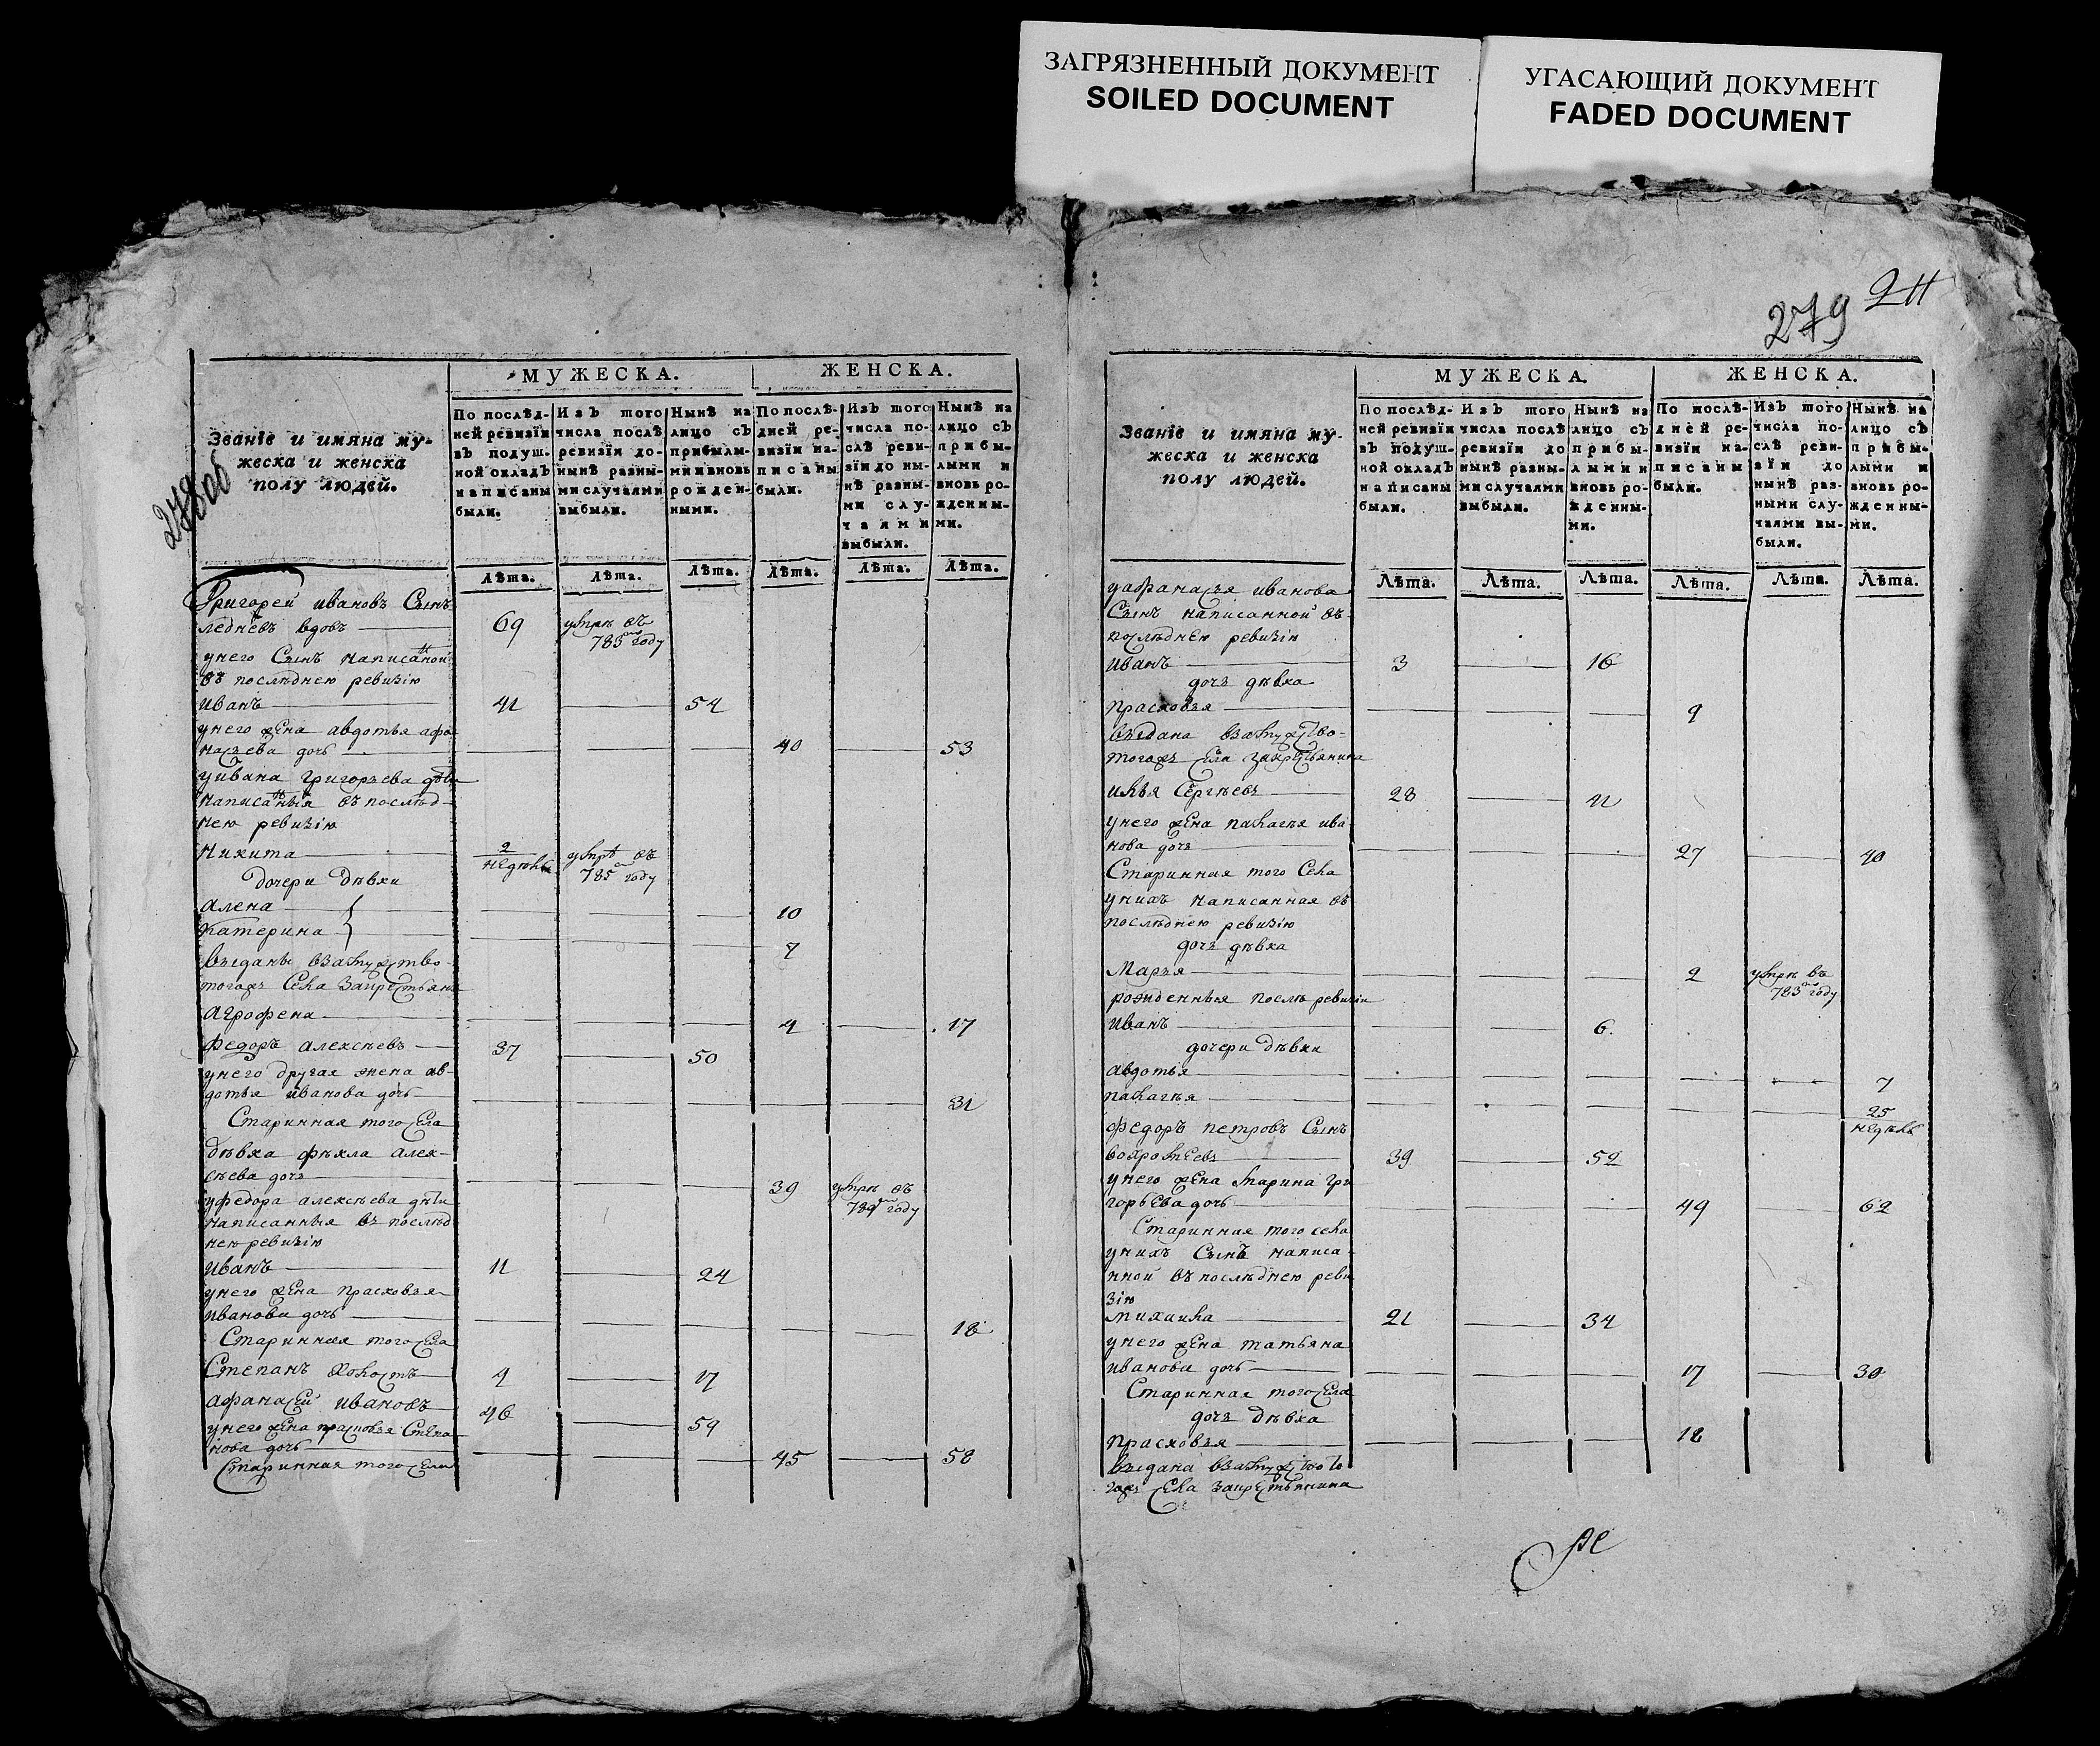 ЗАГРЯЗНЕННЫЙ ДОКУМЕНТ
SOILED DOCUMENT
УГАСАЮЩИЙ ДОКУМЕНТ
FADED DOCUMENT
278об
Званіе и имяна му-
жеска и женска
полу людей.
МУЖЕСКА.
ЖЕНСКА.
По послѣд-
ней ревизіи
въ подуш-
ной окладъ
написаны
были.
Изъ того
числа послѣ
ревизіи до-
нынѣ разны-
ми случаями
выбыли.
Нынѣ на
лицо съ
прибылы-
ми и вновь
рожден-
ными.
По послѣ-
дней ре-
визіи на-
писаны
были.
Изъ того
числа по-
слѣ реви-
зіи до ны-
нѣ разны-
ми слу-
чаями
выбыли.
Нынѣ на
лицо съ
прибы-
лыми и
вновь ро-
жденны-
ми.
Лѣта. Лѣта. Лѣта. Лѣта. Лѣта. Лѣта.
Григорей ивановъ Сынъ
леднёвъ вдовъ 69 умре въ 785 году
унего Сынъ написанной
въ последнею ревизію
иванъ 41 54
унего жена авдотья афо
насьева дочь 40 53
уивана григорьева дети
написанныя въ послед-
нею ревизію
никита 2 недель умре въ 785 году
дочери девки
алена 10
катерина 7
выданы взамужство
тогожъ села закрестьянъ
агрофена 4 17
федоръ алексеевъ 37 50
унего другая жена ав-
дотья иванова дочь 31
Старинная того села
девка фекла алек-
сеева дочь 39 умре въ 789 году
уфедора алексеева дети
написанныя въ послед
нею ревизію
иванъ 11 24
унего жена прасковья
иванова дочь 18
Старинная того села
Степанъ холостъ 4 17
афанасей ивановъ 46 59
унего жена прасковья Степа
нова дочь 45 58
Старинная того села
279 211
Званіе и имяна му-
жеска и женска
полу людей.
МУЖЕСКА.
ЖЕНСКА.
По послѣд-
ней ревизіи
въ подуш-
ной окладъ
написаны
были.
Изъ того
числа послѣ
ревизіи до
нынѣ разны-
ми случаями
выбыли.
Нынѣ на
лицо съ
прибы-
лыми и
вновь ро-
жденны-
ми.
По послѣ-
дней ре-
визіи на-
писаны
были.
Изъ того
числа по-
слѣ реви-
зіи до
нынѣ раз-
ными слу-
чаями вы-
были.
Нынѣ на
лицо съ
прибы-
лыми и
вновь ро-
жденны-
ми.
Лѣта. Лѣта. Лѣта. Лѣта. Лѣта. Лѣта.
уафанасья иванова
Сынъ написанной въ
последнею ревизію
иванъ 3 16
дочь девка
прасковья 9
выдана взамужство
тогожъ села закрестьянина
илья Сергеевъ 28 41
унего жена палагея ива
нова дочь 27 40
Старинная того села
унихъ написанная въ
последнею ревизію
дочь девка
Марья 2 умре въ 783 году
рожденныя после ревизіи
иванъ 6
дочери девки
авдотья 7
палагея 25 недель
федоръ петровъ Сынъ
39 52
унего жена марина гри
горьева дочь 49 62
Старинная того села
унихъ Сынъ написа
нной въ последнею реви
зію
михаила 21 34
унего жена татьяна
иванова дочь 17 30
Старинная того села
дочь девка
прасковья 18
выдана взамужство то
гожъ села закрестьянина